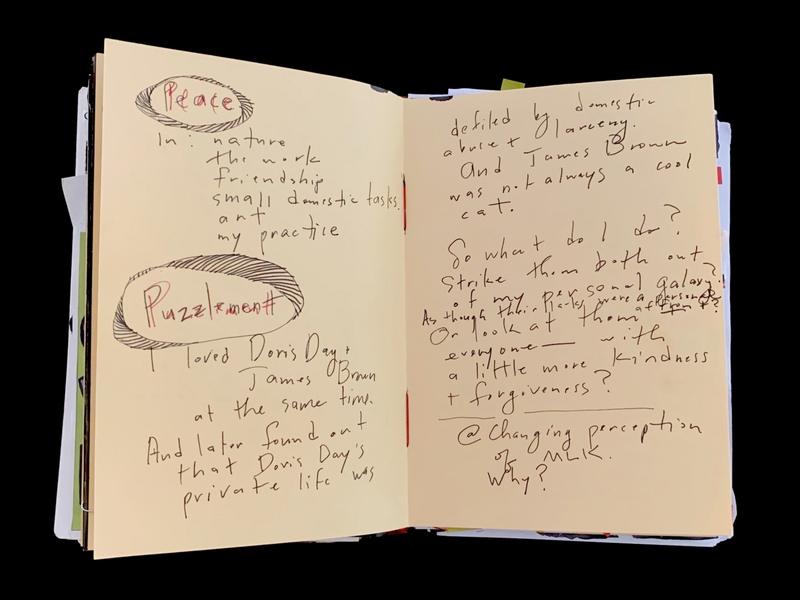 Peace
In: nature
the work
friendship
small domestic tasks.
art
my practice
Puzzlement
I loved Doris Day +
James Brown
at the same time.
And later found out
that Doris Day's
private life was
defiled by domestic
abuse + larceny.
And James Brown
was not always a cool
cat.
So what do I do?
Strike them both out
of my personal galaxy?
As though their lives were a personal affront?
Or look at them
everyone — with
a little more kindness
+ forgiveness?
@ Changing perception
of MLK.
Why?